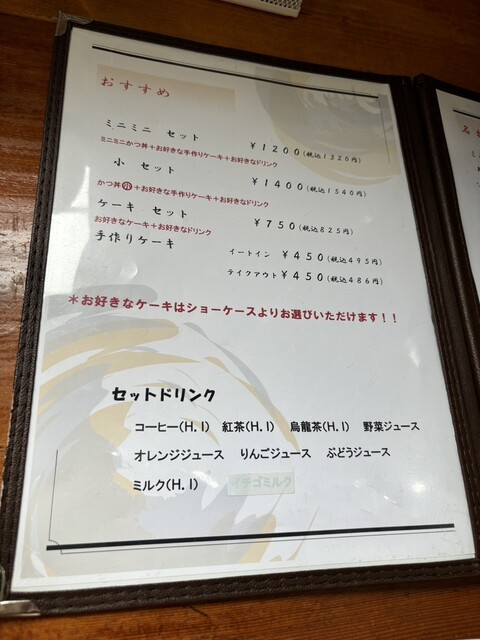 おすすめ
ミニミニ セット ￥1200(税込1320円)
ミニミニかつ丼＋お好きな手作りケーキ＋お好きなドリンク
小 セット ￥1400(税込1540円)
かつ丼小＋お好きな手作りケーキ＋お好きなドリンク
ケーキ セット ￥750(税込825円)
お好きなケーキ＋お好きなドリンク
手作りケーキ イートイン ￥450(税込495円)
テイクアウト ￥450(税込486円)
＊お好きなケーキはショーケースよりお選びいただけます！！
セットドリンク
コーヒー(H.I) 紅茶(H.I) 烏龍茶(H.I) 野菜ジュース
オレンジジュース りんごジュース ぶどうジュース
ミルク(H.I) イチゴミルク